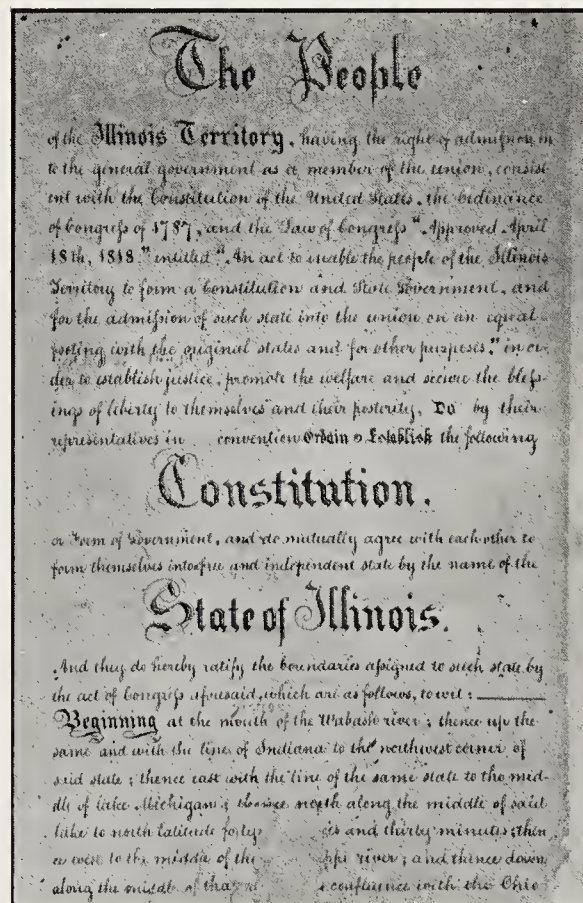 The People
of the Illinois Territory, having the right of admission in
to the general government as a member of the union, consist
ent with the Constitution of the United States, the ordinance
of Congress of 1787, and the Law of Congress "Approved April
18th, 1818." entitled "An act to enable the people of the Illinois
Territory to form a Constitution and State Government, and
for the admission of such state into the union on an equal
footing with the original states and for other purposes," in or
der to establish justice, promote the welfare and secure the bless
ings of liberty to themselves and their posterity, Do by their
representatives in convention Ordain & Establish the following
Constitution.
or Form of Government, and do mutually agree with each other to
form themselves into a free and independent state by the name of the
State of Illinois.
And they do hereby ratify the boundaries assigned to such state by
the act of Congress aforesaid, which are as follows, to wit:
Beginning at the mouth of the Wabash river; thence up the
same and with the line of Indiana to the northwest corner of
said state; thence east with the line of the same state to the mid-
dle of lake Michigan; thence north along the middle of said
lake to north latitude forty and thirty minutes; then
ce west to the middle of the river; and thence down
along the middle of that confluence with the Ohio